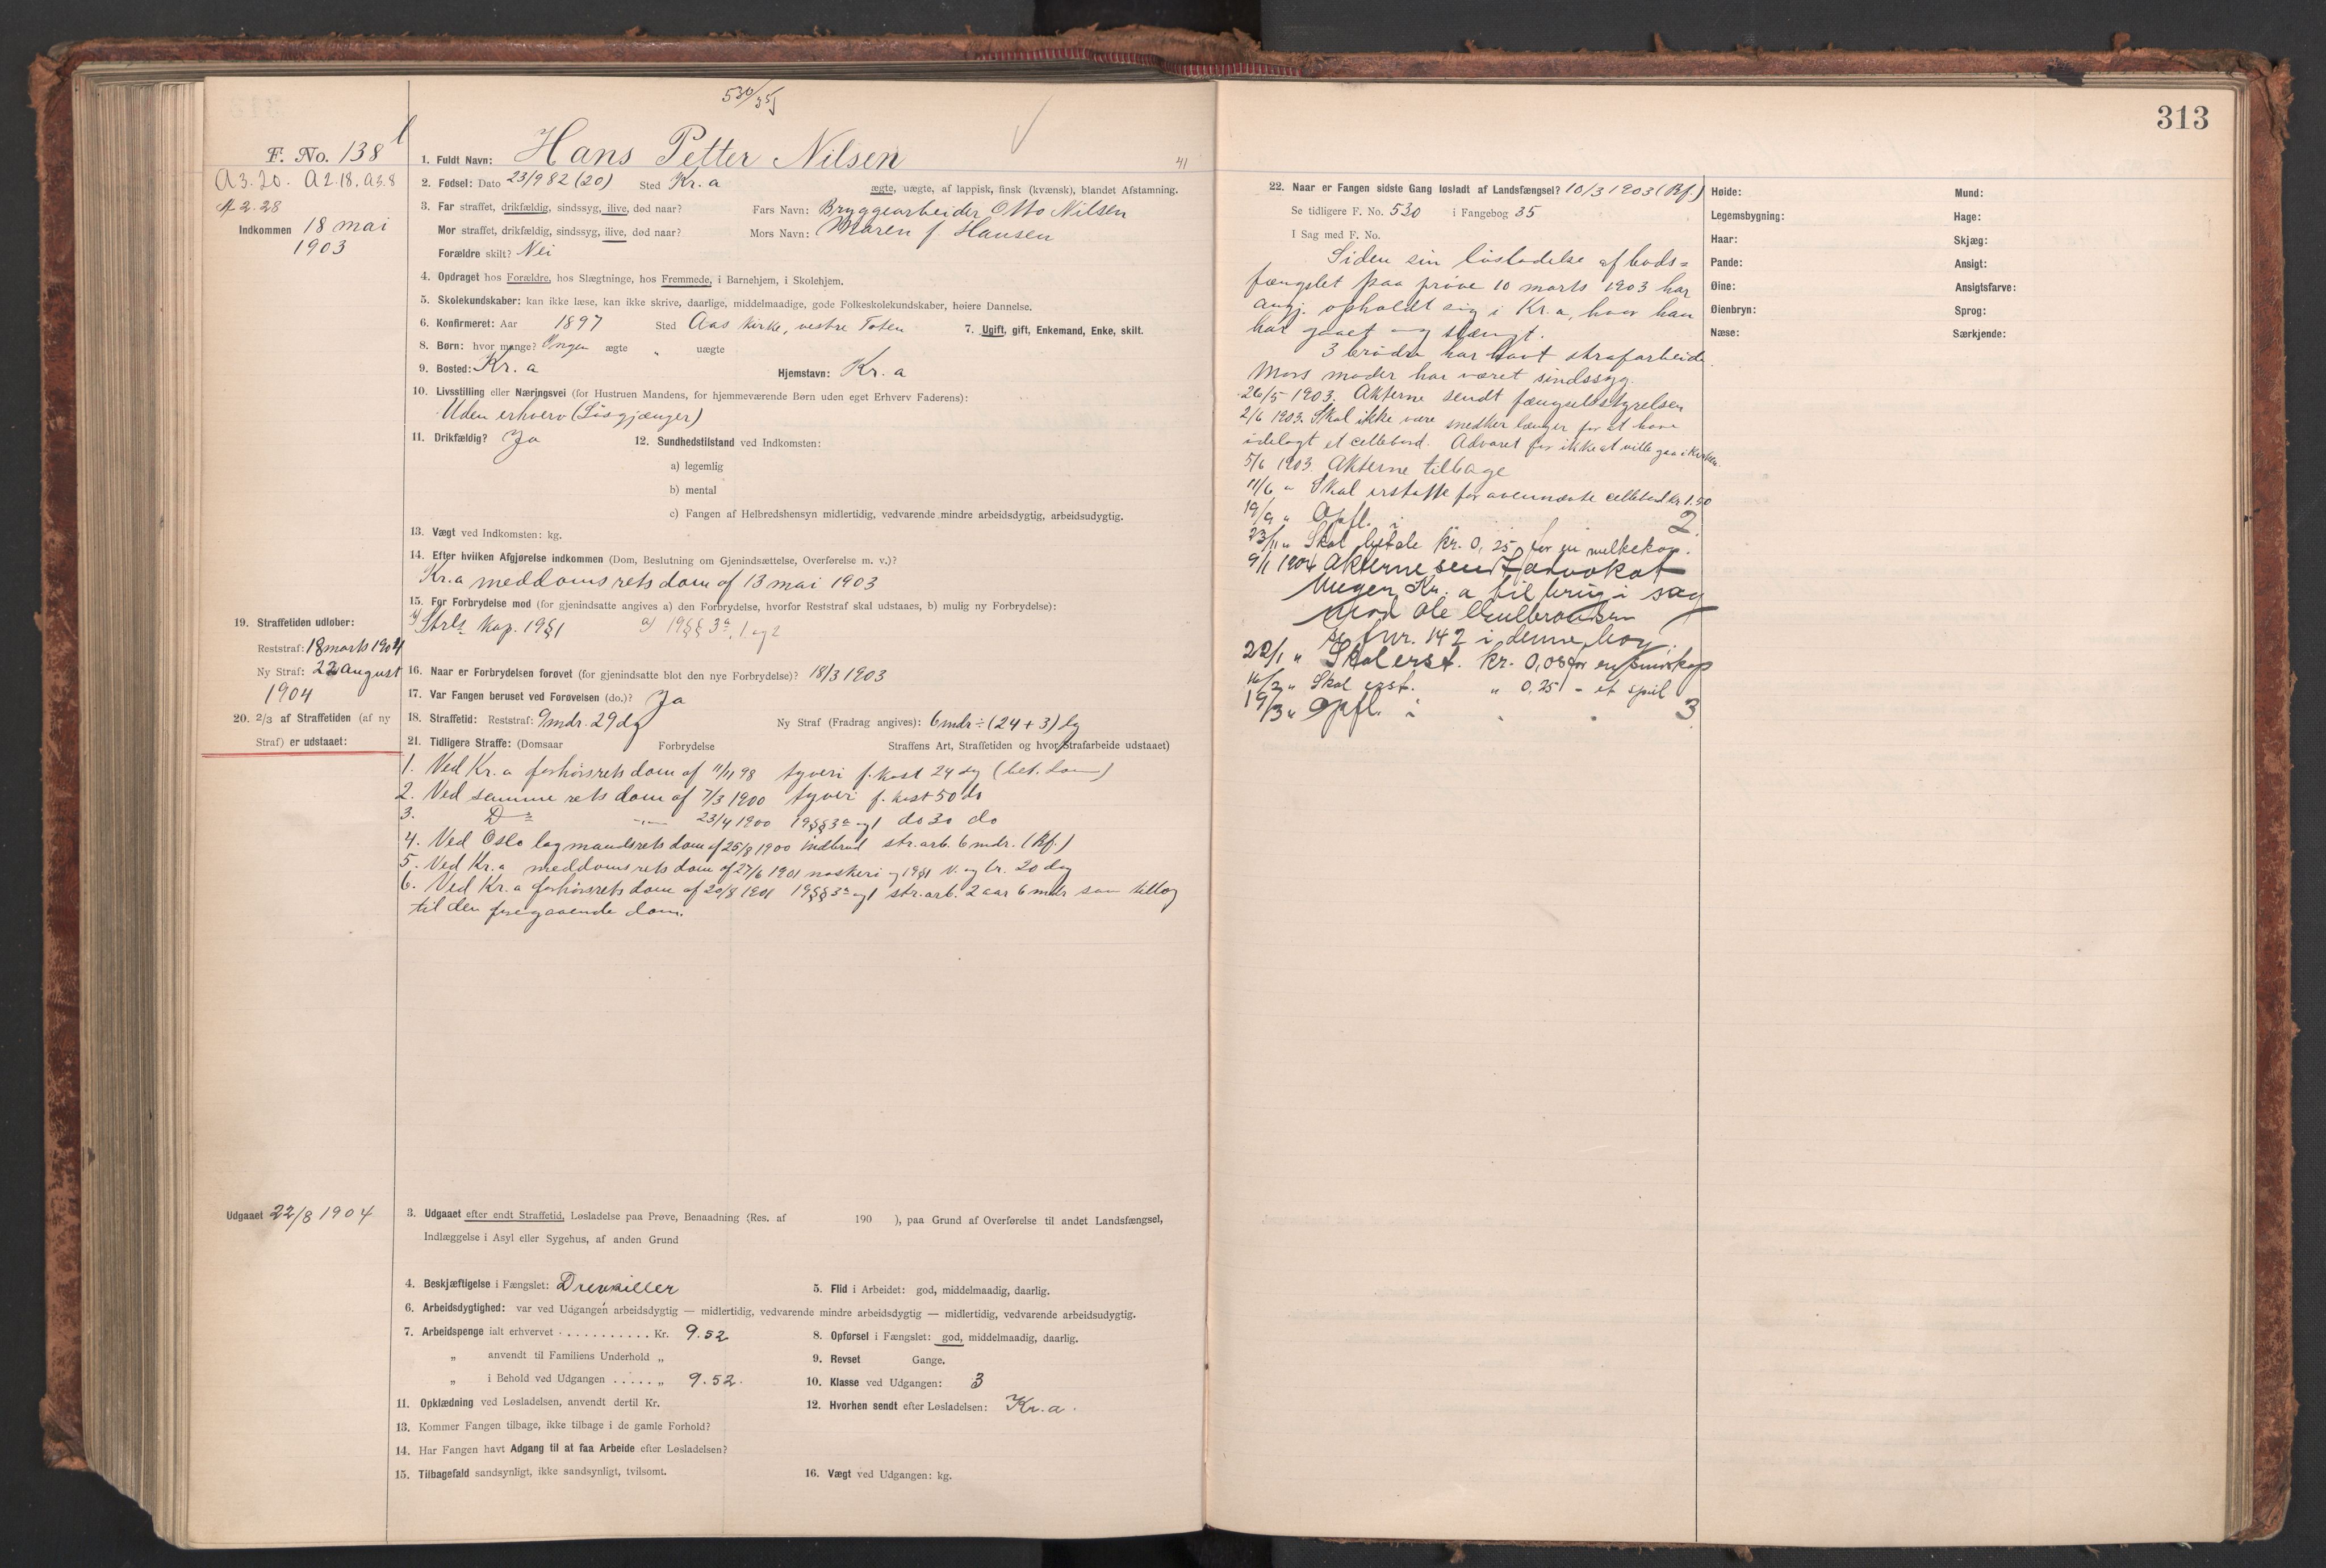 530/35
F. No. 138
A 3.20. A 2.18. A 3.8
A 2.28
Indkommen 18 mai
1903
1. Fuldt Navn: Hans Petter Nilsen
41
2. Fødsel: Dato 23/9 82 (20) Sted Kr.a ægte, uægte, af lappisk, finsk (kvænsk), blandet Afstamning.
3. Far straffet, drikfældig, sindssyg, ilive, død naar? Fars Navn: Bryggearbeider Otto Nilsen
Mor straffet, drikfældig, sindssyg, ilive, død naar? Mors Navn: Maren f. Hansen
Forældre skilt? Nei
4. Opdraget hos Forældre, hos Slægtninge, hos Fremmede, i Barnehjem, i Skolehjem.
5. Skolekundskaber: kan ikke læse, kan ikke skrive, daarlige, middelmaadige, gode Folkeskolekundskaber, høiere Dannelse.
6. Konfirmeret: Aar 1897 Sted Aas kirke, vestre Toten 7. Ugift, gift, Enkemand, Enke, skilt.
8. Børn: hvor mange? Ingen ægte „ uægte
9. Bosted: Kr.a Hjemstavn: Kr.a
10. Livsstilling eller Næringsvei (for Hustruen Mandens, for hjemmeværende Børn uden eget Erhverv Faderens):
Uden erhverv (Løsgjænger)
11. Drikfældig? Ja 12. Sundhedstilstand ved Indkomsten:
a) legemlig
b) mental
c) Fangen af Helbredshensyn midlertidig, vedvarende mindre arbeidsdygtig, arbeidsudygtig.
13. Vægt ved Indkomsten: kg.
14. Efter hvilken Afgjørelse indkommen (Dom, Beslutning om Gjenindsættelse, Overførelse m. v.)?
Kr.a meddomsrets dom af 13 mai 1903
15. For Forbrydelse mod (for gjenindsatte angives a) den Forbrydelse, hvorfor Reststraf skal udstaaes, b) mulig ny Forbrydelse):
b) Strl. kap. 19 § 1 a) 19 §§ 3a, 1 og 2
19. Straffetiden udløber:
Reststraf: 18 marts 1904
Ny Straf: 22 august
1904
16. Naar er Forbrydelsen forøvet (for gjenindsatte blot den nye Forbrydelse)? 18/3 1903
17. Var Fangen beruset ved Forøvelsen (do.)? Ja
20. 2/3 af Straffetiden (af ny
Straf) er udstaaet:
18. Straffetid: Reststraf: 9 mdr. 29 dg Ny Straf (Fradrag angives): 6 mdr ÷ (24 + 3) dg
21. Tidligere Straffe: (Domsaar Forbrydelse Straffens Art, Straffetiden og hvor Strafarbeide udstaaet)
1. Ved Kr.a forhørsrets dom af 11/11 98 tyveri f. kost 24 dg (bet. dom)
2. Ved samme rets dom af 7/3 1900 tyveri f. kost 50 do
3. Do — " — 23/4 1900 19 §§ 3a og 1 do 30 do
4. Ved Oslo lagmandsrets dom af 25/8 1900 indbrud str. arb. 6 mdr. (Bf.)
5. Ved Kr.a meddomsrets dom af 27/6 1901 naskeri og 19 § 1 v. og br. 20 dag
6. Ved Kr.a forhørsrets dom af 20/8 1901 19 §§ 3a og 1 str. arb. 2 aar 6 mdr som tillæg
til den foregaaende dom.
Udgaaet 22/8 1904
3. Udgaaet efter endt Straffetid, Løsladelse paa Prøve, Benaadning (Res. af 190 ), paa Grund af Overførelse til andet Landsfængsel,
Indlæggelse i Asyl eller Sygehus, af anden Grund
4. Beskjæftigelse i Fængslet: Drevpiller 5. Flid i Arbeidet: god, middelmaadig, daarlig.
6. Arbeidsdygtighed: var ved Udgangen arbeidsdygtig — midlertidig, vedvarende mindre arbeidsdygtig — midlertidig, vedvarende arbeidsudygtig.
7. Arbeidspenge ialt erhvervet . . . . . . . . . . . Kr. 9.52 8. Opførsel i Fængslet: god, middelmaadig, daarlig.
„ anvendt til Familiens Underhold „ 9. Revset Gange.
„ i Behold ved Udgangen . . . . . „ 9.52. 10. Klasse ved Udgangen: 3
11. Opklædning ved Løsladelsen, anvendt dertil Kr. 12. Hvorhen sendt efter Løsladelsen: Kr.a.
13. Kommer Fangen tilbage, ikke tilbage i de gamle Forhold?
14. Har Fangen havt Adgang til at faa Arbeide efter Løsladelsen?
15. Tilbagefald sandsynligt, ikke sandsynligt, tvilsomt. 16. Vægt ved Udgangen: kg.
313
22. Naar er Fangen sidste Gang løsladt af Landsfængsel? 10/3 1903 (Bf.)
Se tidligere F. No. 530 i Fangebog 35
I Sag med F. No.
Siden sin løsladelse af bods=
fængslet paa prøve 10 marts 1903 har
angj. opholdt sig i Kr.a, hvor han
har gaaet og slængt.
3 brødre har havt strafarbeide.
Mors moder har været sindssyg.
26/5 1903. Akterne sendt fængselsstyrelsen
2/6 1903. Skal ikke være snedker længer for at have
ødelagt et cellebord. Advaret for ikke at ville gaa i kirken.
5/6 1903. Akterne tilbage
11/6 " Skal erstatte for ovennævnte cellebord kr. 1.50
19/9 " Opfl. i 2.
23/11 " Skal betale kr. 0,25 for en melkekop.
9/1 1904 Akterne sendt advokat
Kr.a til brug i sag
mod Ole Gulbrandsen
se fnr. 142 i denne bog.
22/1 " Skal erst. kr. 0,08 for en smørkop
16/2 " Skal erst. " 0,25 - et speil
19/3 " Opfl. i " " 3.
Høide:
Legemsbygning:
Haar:
Pande:
Øine:
Øienbryn:
Næse:
Mund:
Hage:
Skjæg:
Ansigt:
Ansigtsfarve:
Sprog:
Særkjende: